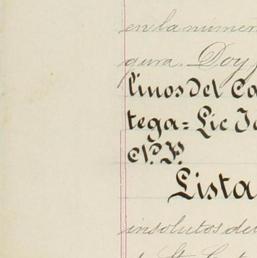 en la númer
gura. Doy
linos del Ca
tega= Lic I
N. P.
Lista
insolutos de